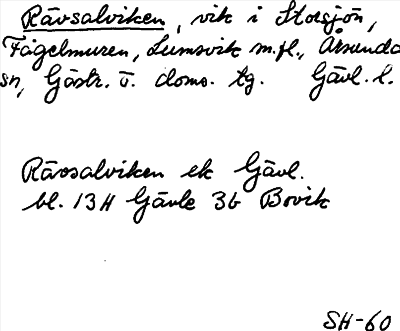 Rävsalviken, vik i Storsjön,
Fågelmuren, Lumsvik m.fl., Årsunda
sn, Gästr. ö. doms. tg. Gävl. l.
Rävsalviken ek Gävl.
bl. 13H Gävle 3b Bovik
SH-60